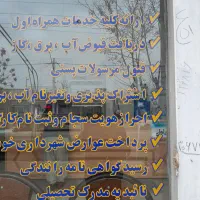 ارائه کلیه خدمات همراه اول
دریافت قبوض آب ، برق ، گاز
قبول مرسولات پستی
اشتراک پذیری و تغییر نام آب ، بر
احراز هویت سجام و ثبت نام کارت
پرداخت عوارض شهرداری خود
رسید گواهی نامه رانندگی
تائیدیه مدرک تحصیلی